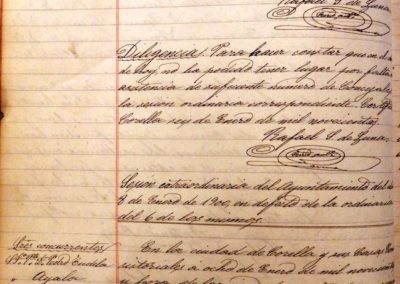 Rafael S. de Luna
Diligencia. Para hacer constar que en el día
de hoy, no ha podido tener lugar por falta de
asistencia de suficiente número de Concejales
la sesión ordinaria correspondiente. Certifico
Corella seis de Enero de mil novecientos
Rafael S. de Luna
Sesión extraordinaria del Ayuntamiento del día
8 de Enero de 1900, en defecto de la ordinaria
del 6 de los mismos.
Sres. concurrentes
Pedro
Ayala
En la ciudad de Corella y sus Casas Con-
sistoriales a ocho de Enero de mil novecientos